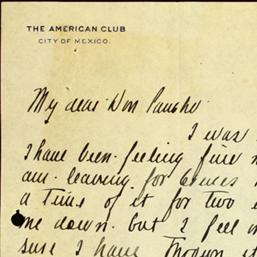 THE AMERICAN CLUB
CITY OF MEXICO.
My dear Don Pancho
I was
I have been feeling fine
am leaving for
a time of it for two
me down. but I feel
sure I have thrown it